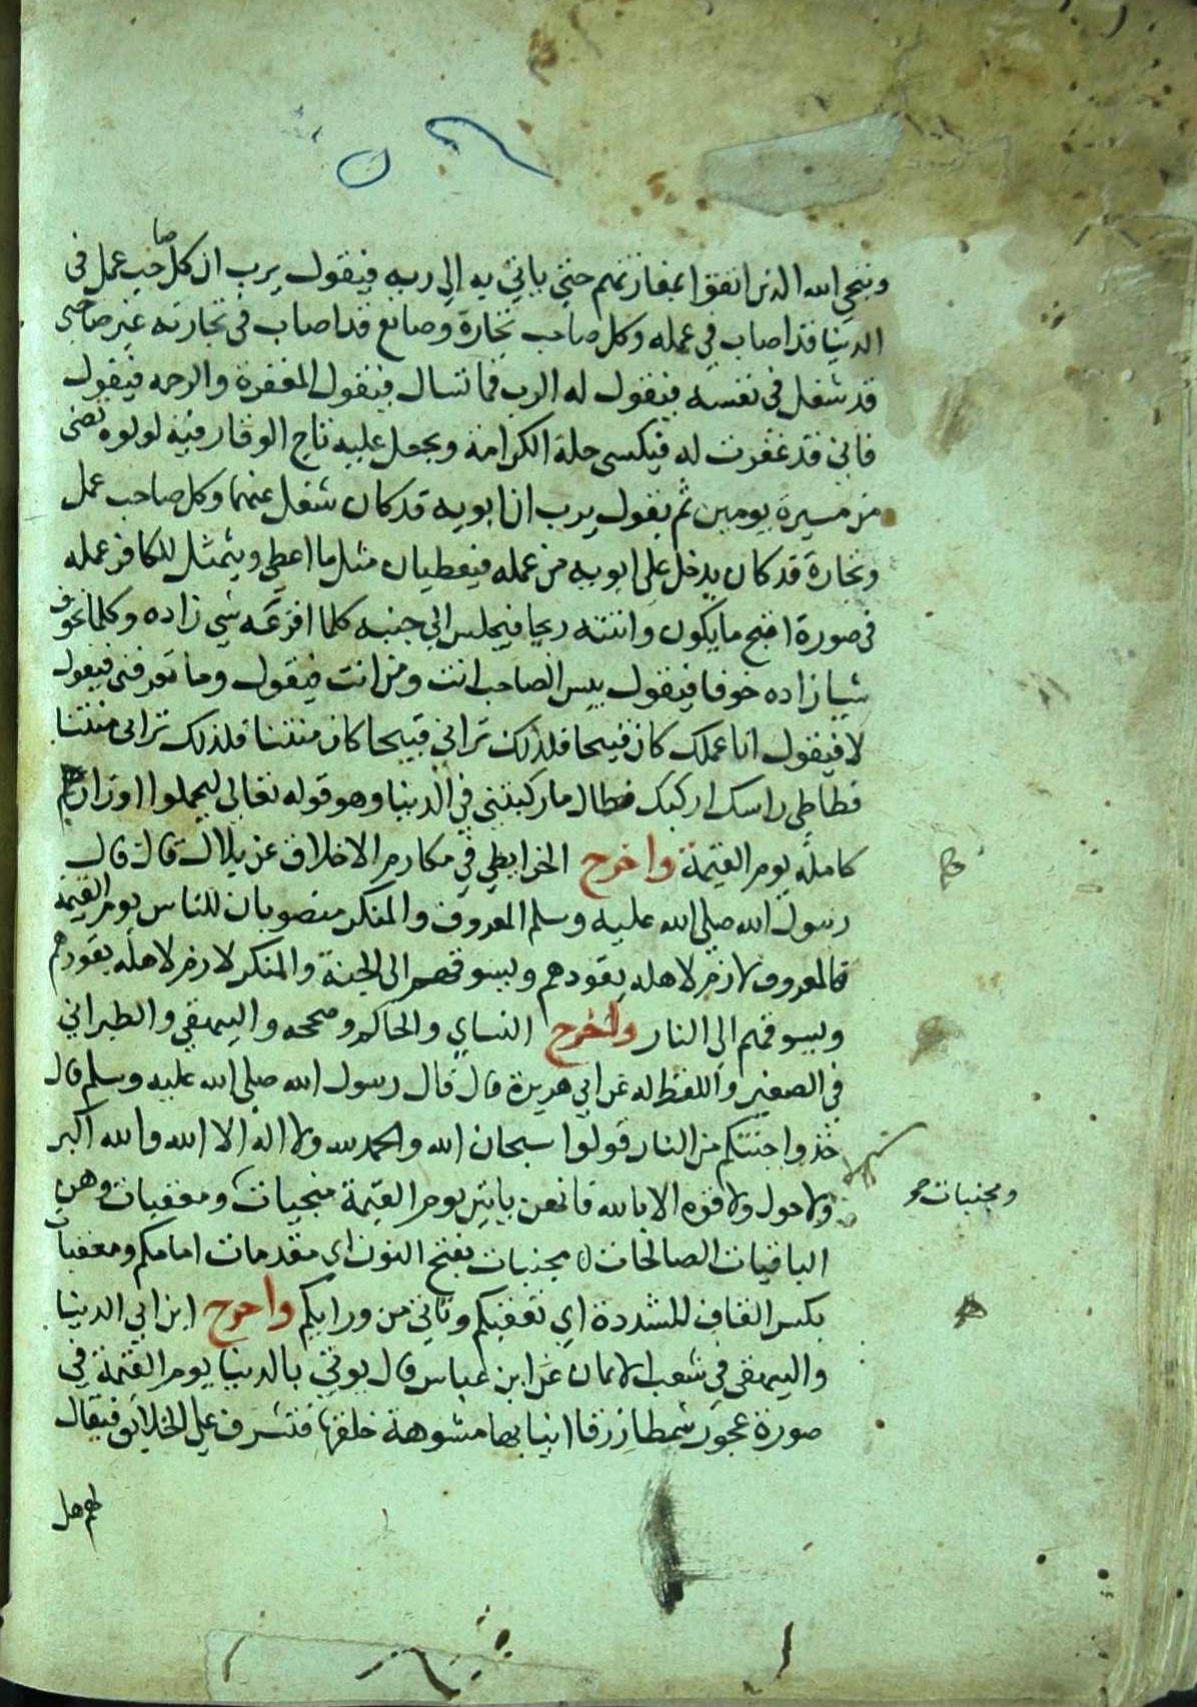 وينجي الله الذين اتقوا بمفازتهم حتي ياتي به الي ربه فيقول يرب ان كل صاحب عمل في
الدنيا قد اصاب في عمله وكل صاحب تجارة وصانع قد اصاب في تجارته غير صاحبي
قد شغل في نفسه فيقول له الرب فما تسال فيقول المغفرة والرحمه فيقول
فاني قد غفرت له فيكسي حلة الكرامة ويجعل عليه تاج الوقار فيه لولوه تضي
من مسيرة يومين ثم يقول يرب ان ابويه قد كان شغل عنهما وكل صاحب عمل
وتجارة قد كان يدخل علي ابويه من عمله فيعطيان مثل ما اعطي ويتمثل للكافر عمله
في صورة اقبح ما يكون وانتنه ريحا فيجلس الي جنبه كلما افزعه شي زاده وكلما تخوف
شيا زاده خوفا فيقول بيس الصاحب انت ومن انت فيقول وما تعرفني فيقول
لا فيقول انا عملك كان قبيحا فلذلك تراني قبيحا كان منتنا فلذلك تراني منتنا
فطاطي راسك اركبك فطال ما ركبتني في الدنيا وهو قوله تعالي ليحملوا اوزارهم
كاملة يوم القيمة واخرج الخرايطي في مكارم الاخلاق عن بلال قال قال
رسول الله صلي الله عليه وسلم المعروف والمنكر منصوبان للناس يوم القيمة
فالمعروف لازم لاهله يقودهم ويسوقهم الي الجنة والمنكر لازم لاهله يقودهم
ويسوقهم الي النار واخرج النساي والحاكم وصححه والبيهقي والطبراني
في الصغير واللفظ له عن ابي هريرة قال قال رسول الله صلي الله عليه وسلم قال
خذوا جنتكم من النار قولوا سبحان الله والحمد لله ولا اله الا الله والله اكبر
ولا حول ولا قوه الا بالله فانهن ياتين يوم القيمة منجيات ومعقبات وهن
ومجنبات صح
الباقيات الصالحات مجنبات بفتح النون اي مقدمات امامكم ومعقبات
بكسر القاف المشددة اي تعقبكم وتاتي من ورايكم واخرج ابن ابي الدنيا
والبيهقي في شعب الايمان عن ابن عباس قال يوتي بالدنيا يوم القيمة في
صورة عجوز شمطا زرقا انيابها مشوهة خلقها فتشرف علي الخلايق فيقال
لهم هل